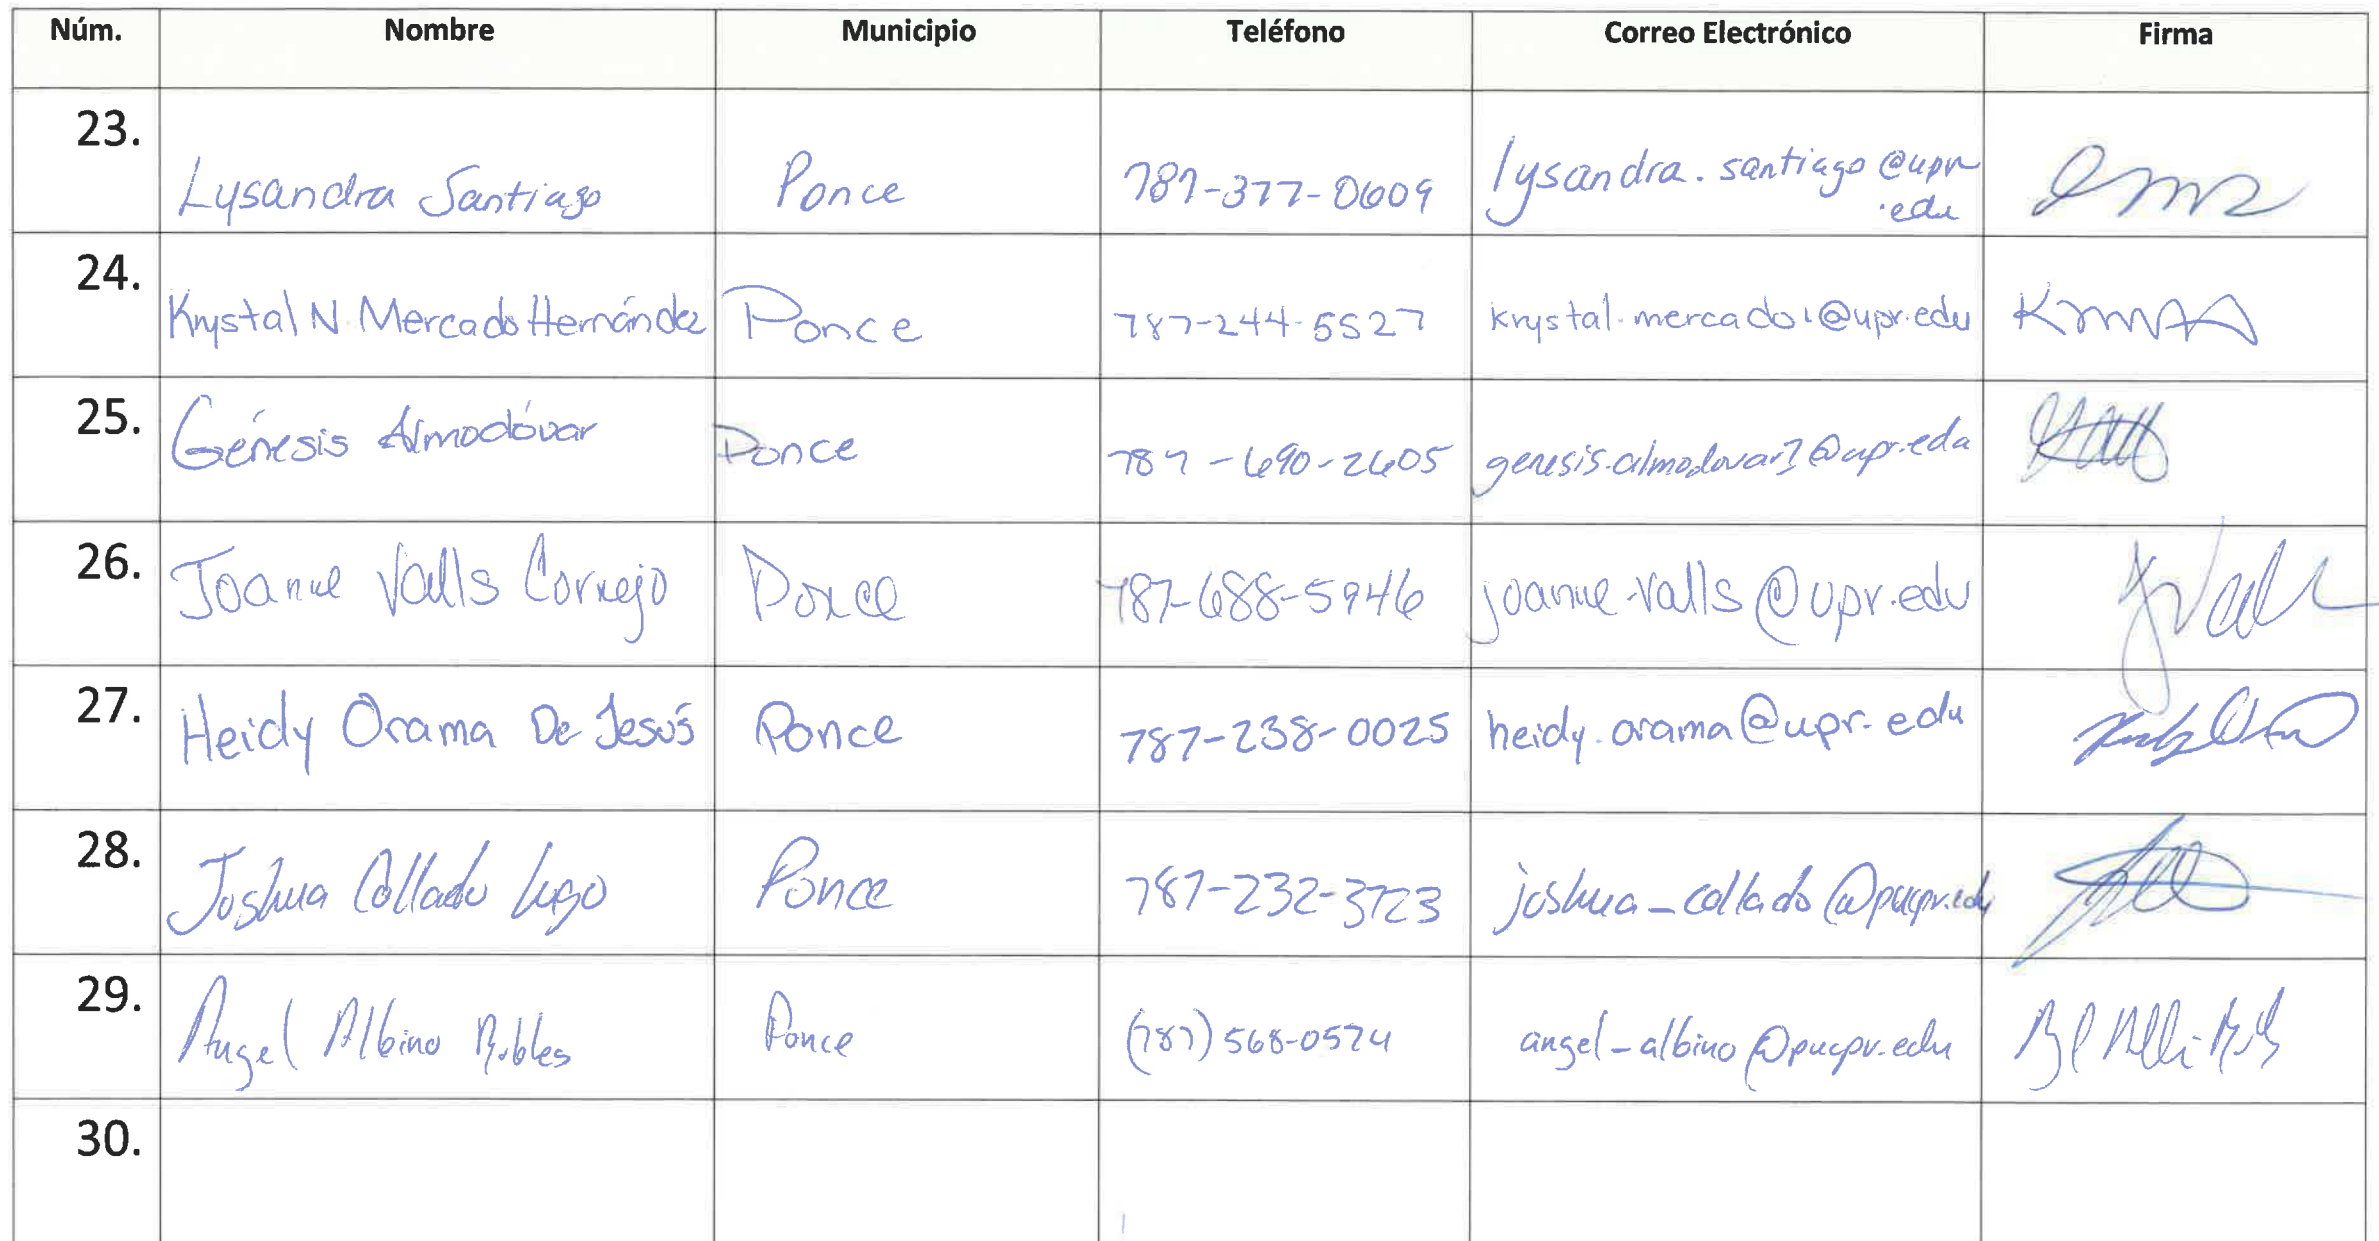 Núm. Nombre Municipio Teléfono Correo Electrónico Firma
23. Lysandra Santiago Ponce 787-377-0609 lysandra.santiago@upr
.edu
24. Krystal N Mercado Hernández Ponce 787-244-5527 krystal.mercado1@upr.edu
25. Génesis Almodóvar Ponce 787-690-2605 genesis.almodovar3@upr.edu
26. Joanne Valls Cornejo Ponce 787-688-5946 joanne.valls@upr.edu
27. Heidy Orama De Jesús Ponce 787-238-0025 heidy.orama@upr.edu
28. Joshua Collado Lugo Ponce 787-232-3723 joshua_collado@pucpr.edu
29. Angel Albino Robles Ponce (787) 568-0574 angel_albino@pucpr.edu
30.